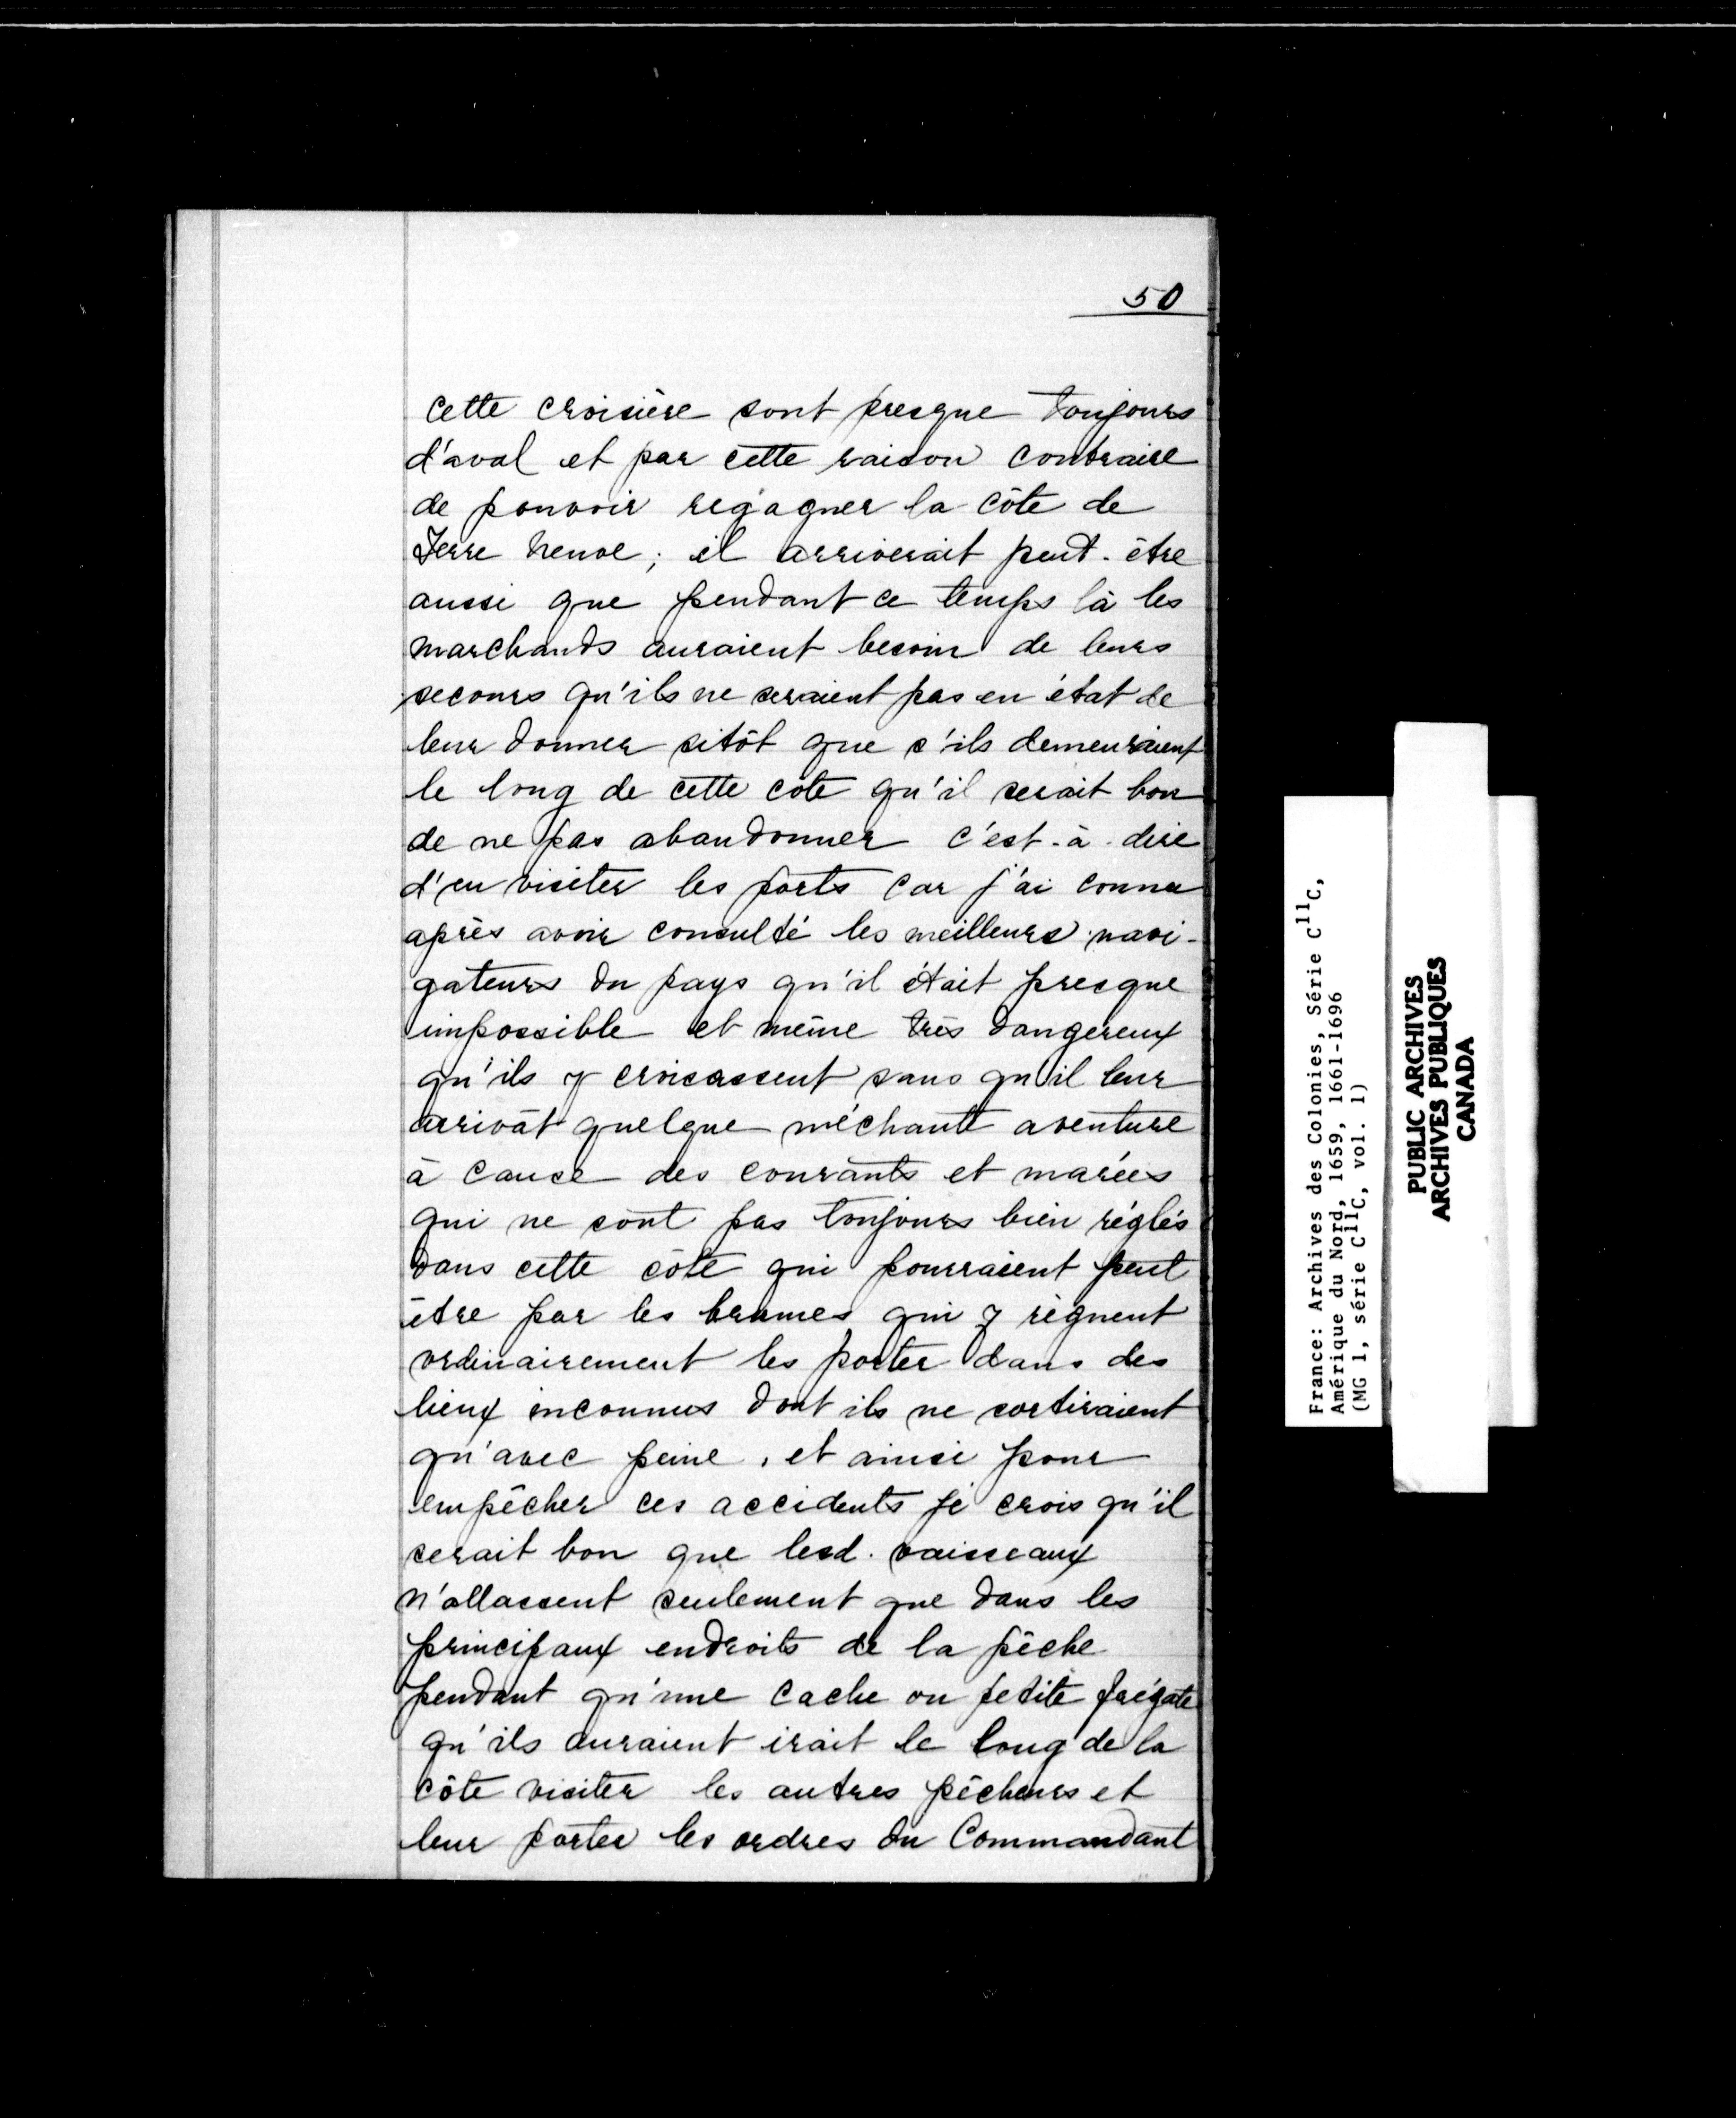 50
cette croisière sont presque toujours
d'aval et par cette raison contraire
de pouvoir regagner la côte de
Terre neuve; il arriverait peut-être
aussi que pendant ce temps là les
marchands auraient besoin de leurs
secours qu'ils ne seraient pas en état de
leur donner sitôt que s'ils demeuraient
le long de cette côte qu'il serait bon
de ne pas abandonner c'est-à-dire
d'en visiter les ports car j'ai connu
après avoir consulté les meilleurs navi-
gateurs du pays qu'il était presque
impossible et même très dangereux
qu'ils y croisassent sans qu'il leur
arrivât quelque méchante aventure
à cause des courants et marées
qui ne sont pas toujours bien réglés
dans cette côte qui pourraient peut
être par les brumes qui y règnent
ordinairement les porter dans des
lieux inconnus dont ils ne sortiraient
qu'avec peine, et ainsi pour
empêcher ces accidents je crois qu'il
serait bon que lesd. vaisseaux
n'allassent seulement que dans les
principaux endroits de la pêche
pendant qu'une cache ou petite frégate
qu'ils auraient irait le long de la
côte visiter les autres pêcheurs et
leur porter les ordres du Commandant
France: Archives des Colonies, Série C11C,
Amérique du Nord, 1659, 1661-1696
(MG 1, série C11C, vol. 1)
PUBLIC ARCHIVES
ARCHIVES PUBLIQUES
CANADA